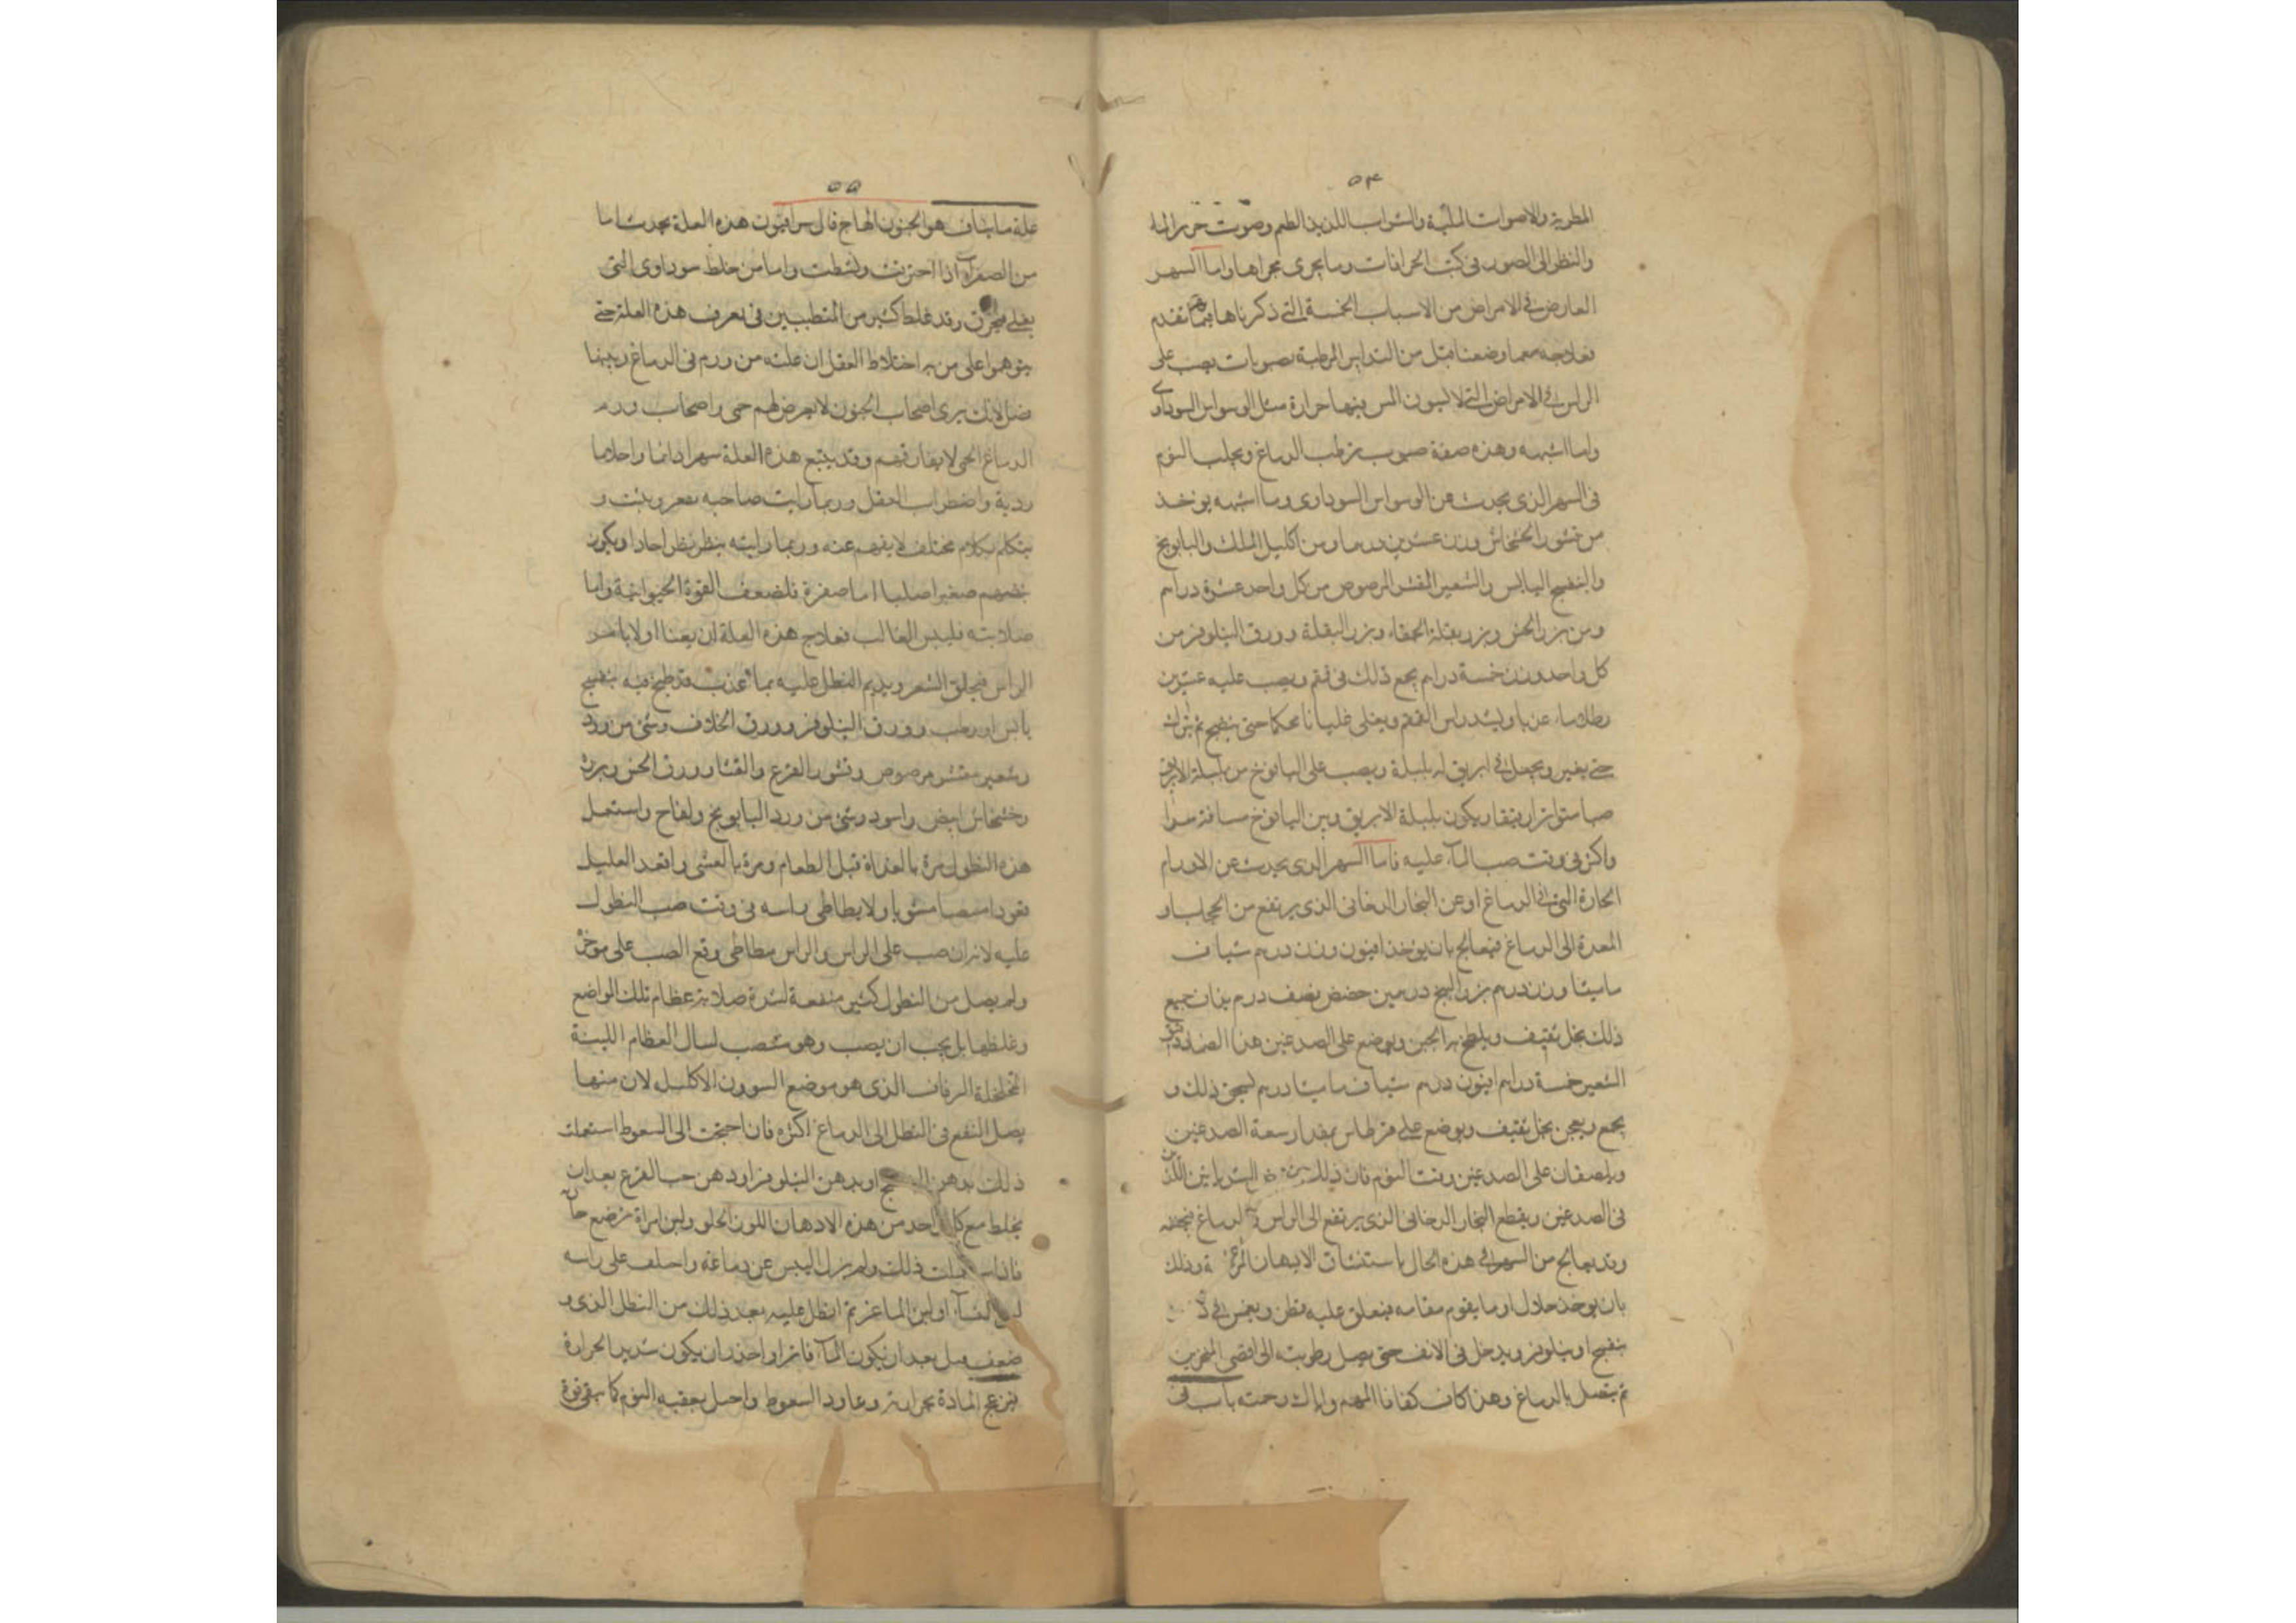 ٥٤
المطربة والاصوات الملهية والشراب اللذيذ الطعم وصوت خرير الماء
والنظر الى الصور فى كتب الخرافات وما يجرى مجراها واما السهر
العارض فى الامراض من الاسباب الخمسة التى ذكرناها فيما تقدم
فعلاجه مما وضعنا قبل من التدابير المرطبة بصبوبات يصب على
الراس فى الامراض التى لا يكون المس فيها حرارة مثل الوسواس السوداوى
واما اشبهه وهذه صفة صبوب يرطب الدماغ ويجلب النوم
فى السهر الذى يحدث عن الوسواس السوداوى وما اشبهه يوخذ
من قشور الخشخاش وزن عشرين درهما ومن اكليل الملك والبابونج
والبنفسج اليابس والشعير المقشر المرصوص من كل واحد عشرة دراهم
ومن بزر الخس وبزر بقلة الحمقاء وبزر البقلة وورق النيلوفر من
كل واحد وزن خمسة دراهم يجمع ذلك فى قمقم ويصب عليه عشرين
رطلا ماء عذبا ويشد راس القمقم ويغلى غليانا محكما حتى ينضج ثم يترك
حتى يفتر ويجعل فى ابريق له بلبلة ويصب على اليافوخ من بلبلة الابريق
صبا متواترا ويكون بلبلة الابريق وبين اليافوخ مسافة
واكثر فى وقت صب الماء عليه فاما السهر الذى يحدث عن الاورام
الحارة التى فى الدماغ او عن البخار الدخانى الذى يرتفع من الحجاب او
المعدة الى الدماغ فيعالج بان يوخذ افيون وزن درهم شياف
ماميثا وزن درهم بزر البنج درهمين حضض نصف درهم يذاف جميع
ذلك بخل ثقيف ويلطخ به الجبين ويوضع على الصدغين هذا الضماد دقيق
الشعير خمسة دراهم افيون درهم شياف ماميثا درهم يسحق ذلك و
يجمع ويعجن بخل ثقيف ويوضع على قرطاس بمقدار سعة الصدغين
ويلصقان على الصدغين وقت النوم فان ذلك الشرايين اللذين
فى الصدغين ويقطع البخار الدخانى الذى يرتفع الى الراس الدماغ فيجففه
وقد يعالج من السهر فى هذه الحال باستنشاق الادهان وذلك
بان يوخذ خلال او ما يقوم مقامه فيعلق عليه قطن ويغمس فى
بنفسج او نيلوفر ويدخل فى الانف حتى يصل رطوبته الى اقصى المنخرين
ثم يتصل بالدماغ وهذا كاف كفانا المهم واياك رحمته باب فى
٥٥
علة مانياف هو الجنون الهايج قال سرافيون هذه العلة يحدث اما
من الصفراء اذا احترقت وتشطت واما من خلط سوداوى التى
يغلى فيحترق وقد غلط كثير من المتطببين فى تعرف هذه العلة حتى
يتوهموا على من به اختلاط العقل ان علته من ورم فى الدماغ وبينهما
فضل لانك ترى اصحاب الجنون لا يعرض لهم حمى واصحاب ورم
الدماغ الحمى لا يفارقهم وقد يتبع هذه العلة سهرا دائما واحلاما
ردية واضطراب العقل وربما رايت صاحبه يقفز ويثب و
يتكلم بكلام مختلف لا يفهم عنه وربما رايته ينظر نظرا حادا ويكون
نبضهم صغيرا صلبا اما صغره فلضعف القوة الحيوانية واما
صلابته فليبس الغالب فعلاج هذه العلة ان يعنا اولا بامر
الراس فيحلق الشعر ويديم النطل عليه بماء عذب قد طبخ فيه بنفسج
يابس او رطب وورق النيلوفر وورق الخلاف وشئ من ورد
وشعير مقشر مرصوص وقشور القرع والقثا وورق الخس وبزره
وخشخاش ابيض واسود وشئ من ورد البابونج ولفاح واستعمل
هذه النطول مرة بالغداة قبل الطعام ومرة بالعشى واقعد العليل
قعودا منتصبا مستويا ولا يطاطى راسه فى وقت صب النطول
عليه لانه ان صب على الراس والراس مطاطى وقع الصب على موخره
ولم يصل من النطول كثير منفعة لشدة صلابة عظام تلك المواضع
وغلظها بل يجب ان يصب وهو منتصب لسال العظام اللينة
المخلخلة الرقاق الذى هو موضع السوون الاكليل لان منها
يصل النفع فى النطل الى الدماغ اكثره فان احتجت الى السعوط استعملت
ذلك بدهن البنفسج او بدهن النيلوفر او دهن حب القرع بعد ان
يخلط مع كل واحد من هذه الادهان اللوز الحلو ولبن امراة ترضع
فاذا استعملت ذلك ولم يزل اليبس عن دماغه واحلف على راسه
لبن النساء او لبن الماعز ثم انطل عليه بعد ذلك من النطل الذى و
ضعف قبل بعد ان يكون الماء فاترا واحذر ان يكون شديد الحرارة
فيزعج المادة بحرارته وعاود السعوط واحمل بعقبه النوم كما يبقى قوة